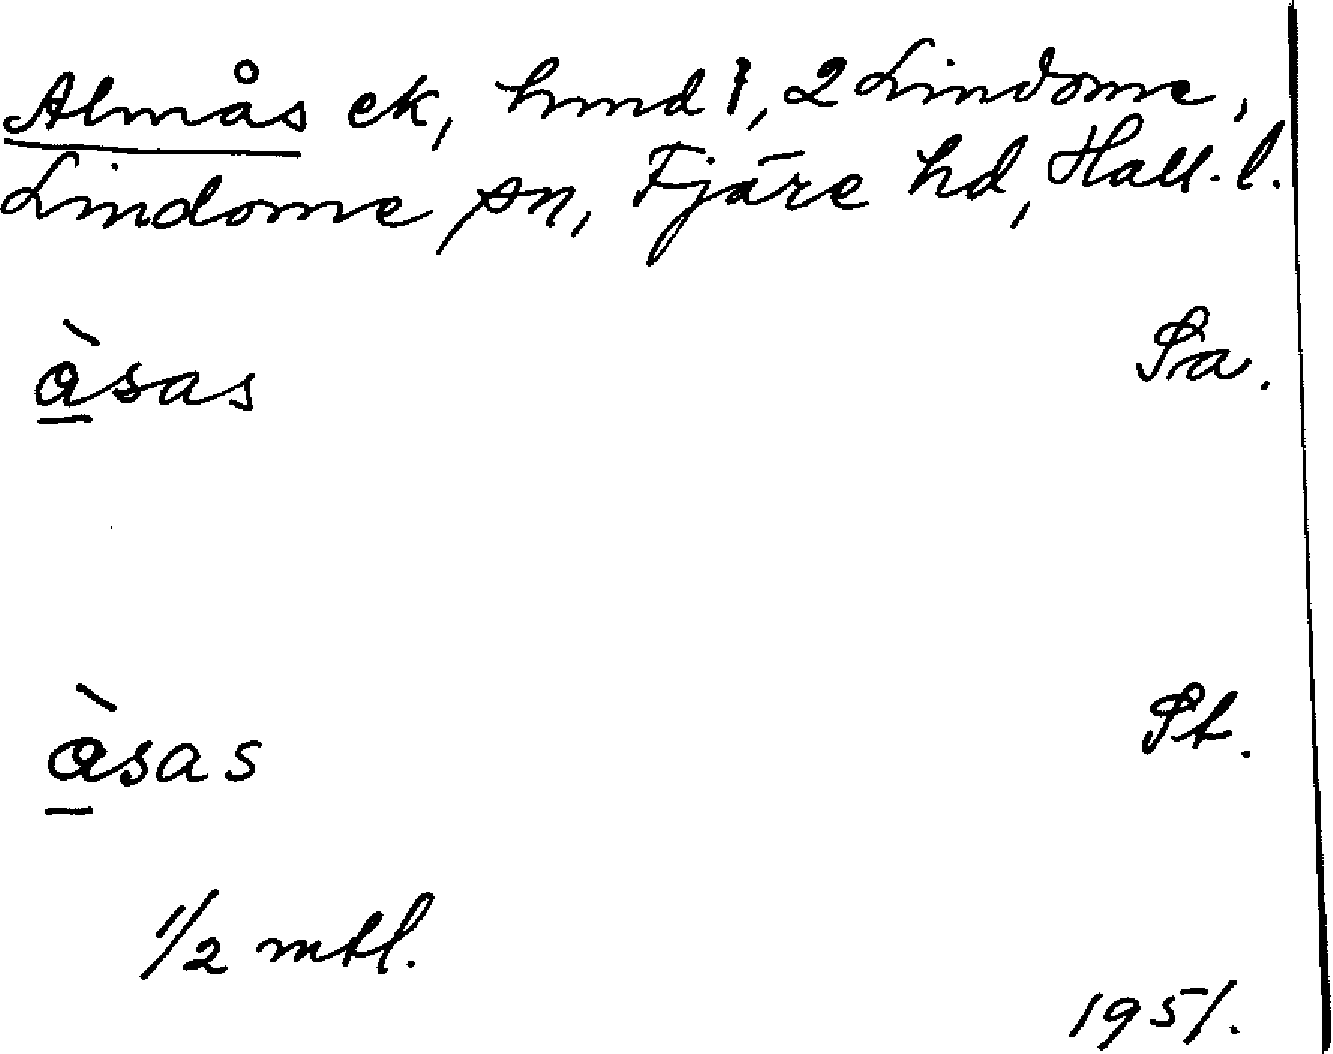 Almås ek, hmd 1, 2 Lindome,
Lindome sn, Fjäre hd, Hall. l.
àsas Sa.
àsas St.
1/2 mtl.
1951.